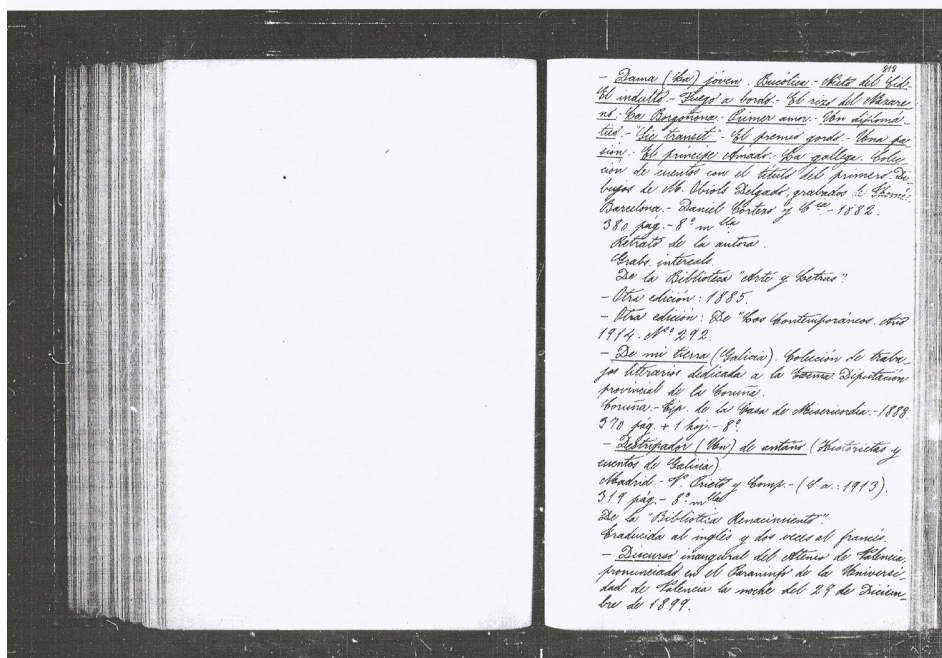 818
- Dama (La) jóven. Bucólica.- Nieto del Cid.-
El indulto.- Fuego a bordo.- El rizo del Nazare-
no.- La Borgoñona.- Primer amor.- Un diplomá-
tico.- "Sic transit".- El premio gordo.- Una pa-
sión.- El príncipe Amado.- La gallega. Colec-
ción de cuentos con el título del primero. Di-
bujos de M. Obiols Delgado, grabados de Thomás.
Barcelona.- Daniel Cortezo y Cía - 1882.
380 pág.- 8º mlla
Retrato de la autora.
Grabs. intercals.
De la Biblioteca "Arte y Letras".
- Otra edición: 1885.
- Otra edición: De "Los Contemporáneos. Año
1914. Nº 292.
- De mi tierra (Galicia). Colección de traba-
jos literarios dedicada a la Excma. Diputación
provincial de la Coruña.
Coruña.- Tip. de la Casa de Misericordia.- 1888
370 pág. + 1 hoj.- 8º.
- Destripador (Un) de antaño (Historietas y
cuentos de Galicia).
Madrid.- V. Prieto y Comp.- (S. a.: 1913).
319 pág.- 8º mlla
De la "Biblioteca Renacimiento".
Traducida al inglés y dos veces al francés.
- Discurso inaugural del Ateneo de Valencia,
pronunciado en el Paraninfo de la Universi-
dad de Valencia la noche del 29 de Diciem-
bre de 1899.